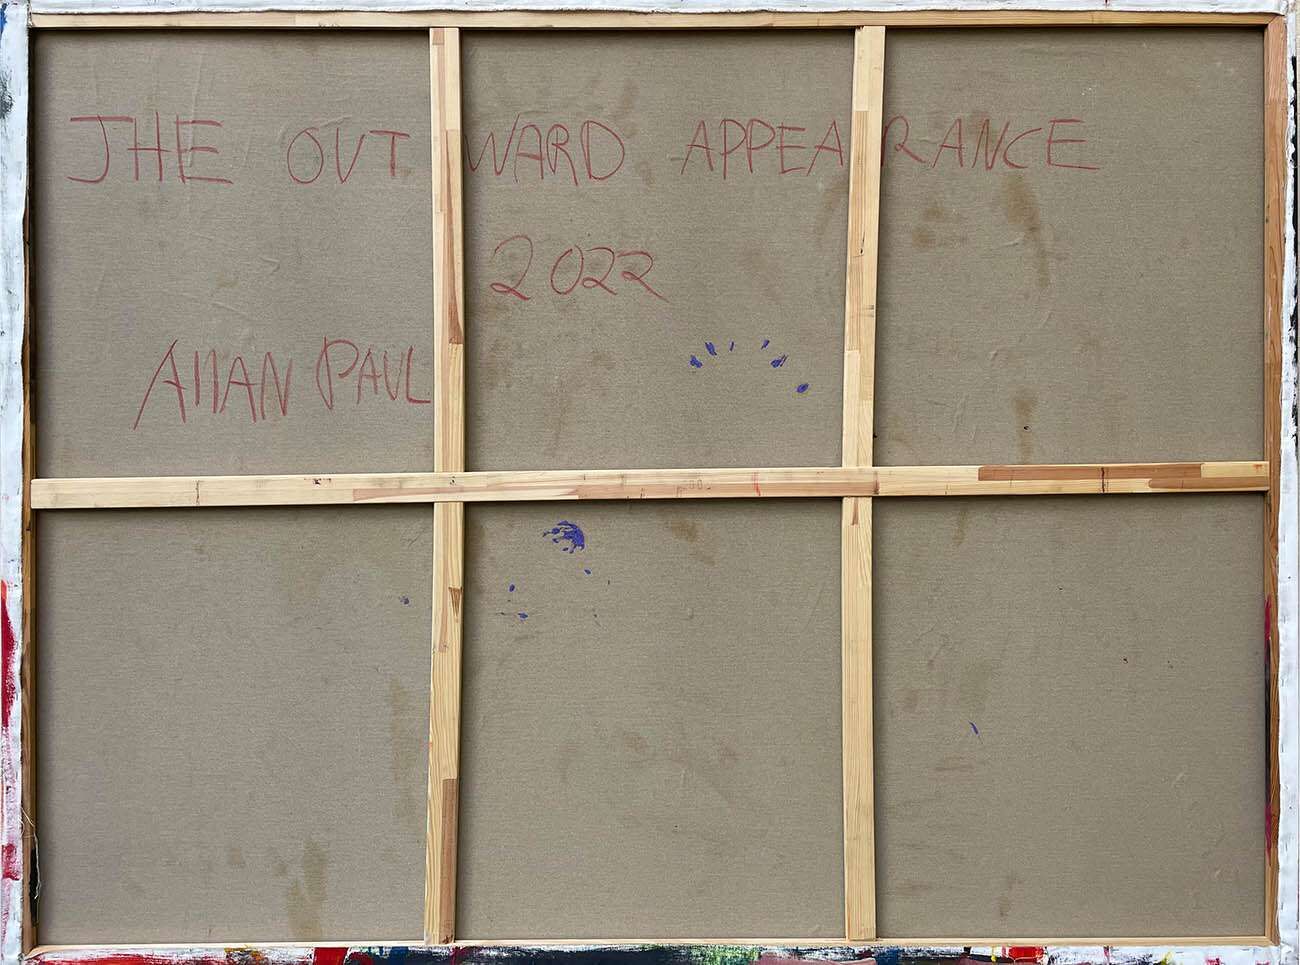 THE OUTWARD APPEARANCE
2022
AllAN PAUL